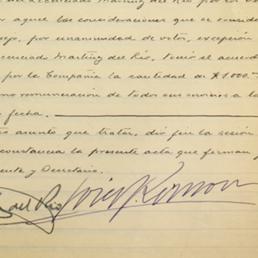 Martínez del Río
por aquel las consideraciones que se
por unanimidad de votos, excepción
Martínez del Río, tomó el acuerdo
por la Compañía la cantidad de $1000.-
remuneración de todos sus servicios a la
fecha.
asunto que tratar, dió fin la sesión
constancia la presente acta que firman
y Secretario.
del Río